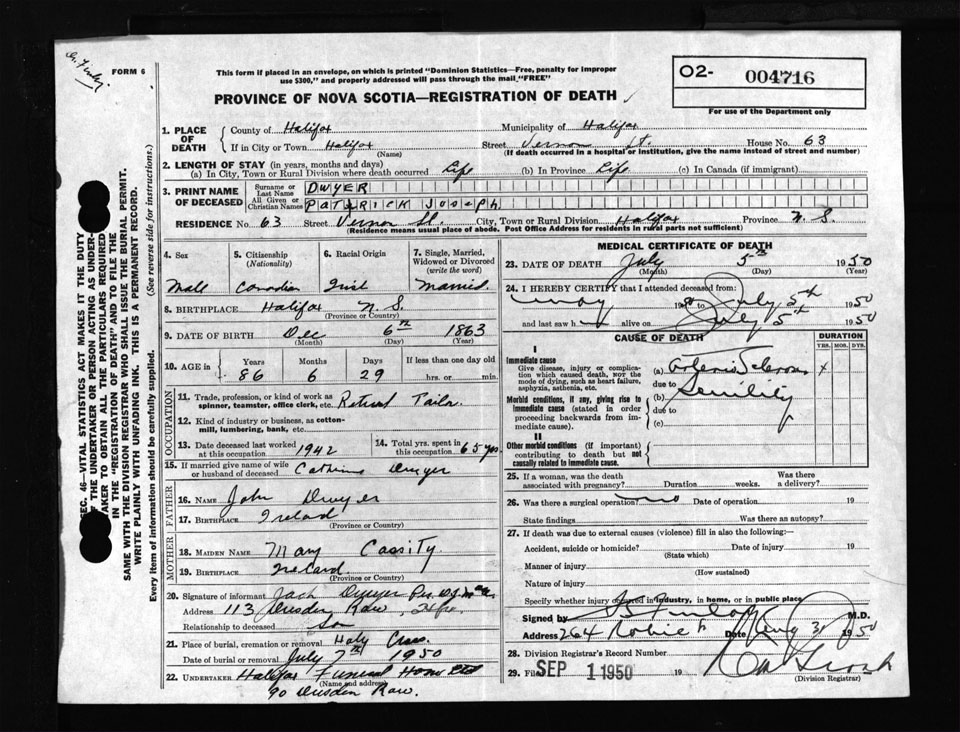 FORM 6
This form if placed in an envelope, on which is printed "Dominion Statistics—Free, penalty for improper
use $300," and properly addressed will pass through the mail "FREE"
O2- 004716
For use of the Department only
PROVINCE OF NOVA SCOTIA—REGISTRATION OF DEATH
1. PLACE OF DEATH
County of Halifax Municipality of Halifax
If in City or Town Halifax Street Vernon St. House No. 63
(Name) (If death occurred in a hospital or institution, give the name instead of street and number)
2. LENGTH OF STAY (in years, months and days)
(a) In City, Town or Rural Division where death occurred Life (b) In Province Life (c) In Canada (if immigrant)
3. PRINT NAME OF DECEASED
Surname or Last Name DWYER
All Given or Christian Names PATRICK JOSEPH
RESIDENCE No. 63 Street Vernon St. City, Town or Rural Division Halifax Province N. S.
(Residence means usual place of abode. Post Office Address for residents in rural parts not sufficient)
4. Sex
Male
5. Citizenship (Nationality)
Canadian
6. Racial Origin
Irish
7. Single, Married, Widowed or Divorced (write the word)
Married
8. BIRTHPLACE Halifax N.S.
(Province or Country)
9. DATE OF BIRTH Dec 6th 1863
(Month) (Day) (Year)
10. AGE in Years Months Days If less than one day old
86 6 29 hrs. or min.
OCCUPATION
11. Trade, profession, or kind of work as
spinner, teamster, office clerk, etc. Retired Tailor
12. Kind of industry or business, as cotton-
mill, lumbering, bank, etc.
13. Date deceased last worked
at this occupation 1942
14. Total yrs. spent in
this occupation 65 yrs
15. If married give name of wife
or husband of deceased Catherine Dwyer
FATHER
16. NAME John Dwyer
17. BIRTHPLACE Ireland
(Province or Country)
MOTHER
18. MAIDEN NAME Mary Cassity
19. BIRTHPLACE Ireland
(Province or Country)
20. Signature of informant Jack Dwyer Per
Address 113 Dresden Row, Hfx.
Relationship to deceased Son
21. Place of burial, cremation or removal Holy Cross
Date of burial or removal July 7th 1950
22. UNDERTAKER Halifax Funeral Home Ltd
(Name and address)
90 Dresden Row.
MEDICAL CERTIFICATE OF DEATH
23. DATE OF DEATH July 5th 1950
(Month) (Day) (Year)
24. I HEREBY CERTIFY that I attended deceased from:
May 19 to July 5th 1950
and last saw h alive on July 5th 1950
CAUSE OF DEATH DURATION
YRS. MOS. DYS.
I
Immediate cause
Give disease, injury or complica-
tion which caused death, not the
mode of dying, such as heart failure,
asphyxia, asthenia, etc.
(a) Arterio Sclerosis x
due to
Morbid conditions, if any, giving rise to
immediate cause (stated in order
proceeding backwards from im-
mediate cause).
(b) Senility
due to
(c)
II
Other morbid conditions (if important)
contributing to death but not
causally related to immediate cause.
25. If a woman, was the death
associated with pregnancy? Duration weeks. Was there
a delivery?
26. Was there a surgical operation? no Date of operation 19
State findings Was there an autopsy?
27. If death was due to external causes (violence) fill in also the following:—
Accident, suicide or homicide? Date of injury 19
(State which)
Manner of injury
(How sustained)
Nature of injury
Specify whether injury occurred in industry, in home, or in public place
Signed by M.D.
Address 264 Robie St Date Aug 31 1950
28. Division Registrar's Record Number
29. Filed SEP 1 1950
(Division Registrar)
SEC. 46—VITAL STATISTICS ACT MAKES IT THE DUTY
OF THE UNDERTAKER OR PERSON ACTING AS UNDER-
TAKER TO OBTAIN ALL THE PARTICULARS REQUIRED
IN THE "REGISTRATION OF DEATH" AND TO FILE THE
SAME WITH THE DIVISION REGISTRAR WHO SHALL ISSUE THE BURIAL PERMIT.
WRITE PLAINLY WITH UNFADING INK. THIS IS A PERMANENT RECORD.
Every item of information should be carefully supplied. (See reverse side for instructions.)